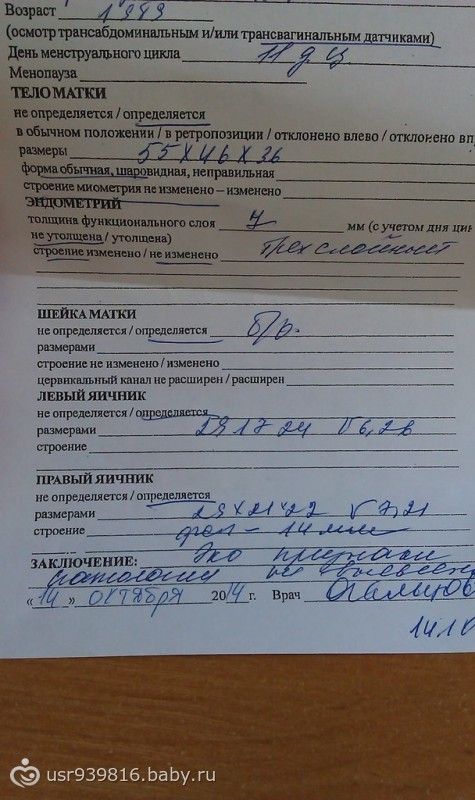 Возраст 1989
(осмотр трансабдоминальным и/или трансвагинальным датчиками)
День менструального цикла 11 д ц.
Менопауза
ТЕЛО МАТКИ
не определяется / определяется
в обычном положении / в ретропозиции / отклонено влево / отклонено вп
размеры 55 х 46 х 36
форма обычная, шаровидная, неправильная
строение миометрия не изменено – изменено
ЭНДОМЕТРИЙ
толщина функционального слоя 7 мм (с учетом дня цик
не утолщена / утолщена)
строение изменено / не изменено трехслойный
ШЕЙКА МАТКИ
не определяется / определяется б/о.
размерами
строение не изменено / изменено
цервикальный канал не расширен / расширен
ЛЕВЫЙ ЯИЧНИК
не определяется / определяется
размерами 29 17 24 V 6,2
строение
ПРАВЫЙ ЯИЧНИК
не определяется / определяется
размерами 29 х 21 х 22 V 7,21
строение фол – 14 мм
ЗАКЛЮЧЕНИЕ: Эхо признаки
патологии не выявлен
«14» октября 2014 г. Врач
14.10
usr939816.baby.ru